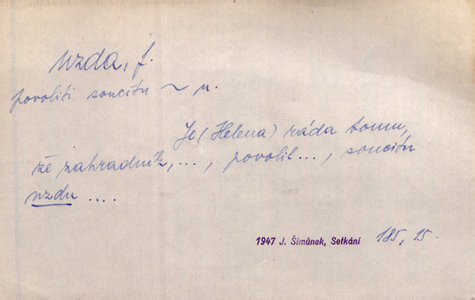 uzda, f.
povoliti soucitu ~ u.
Je (Helena) ráda tomu,
že zahradník, ..., povolil ..., soucitu
uzdu ....
1947 J. Šimůnek, Setkání 185, 15.